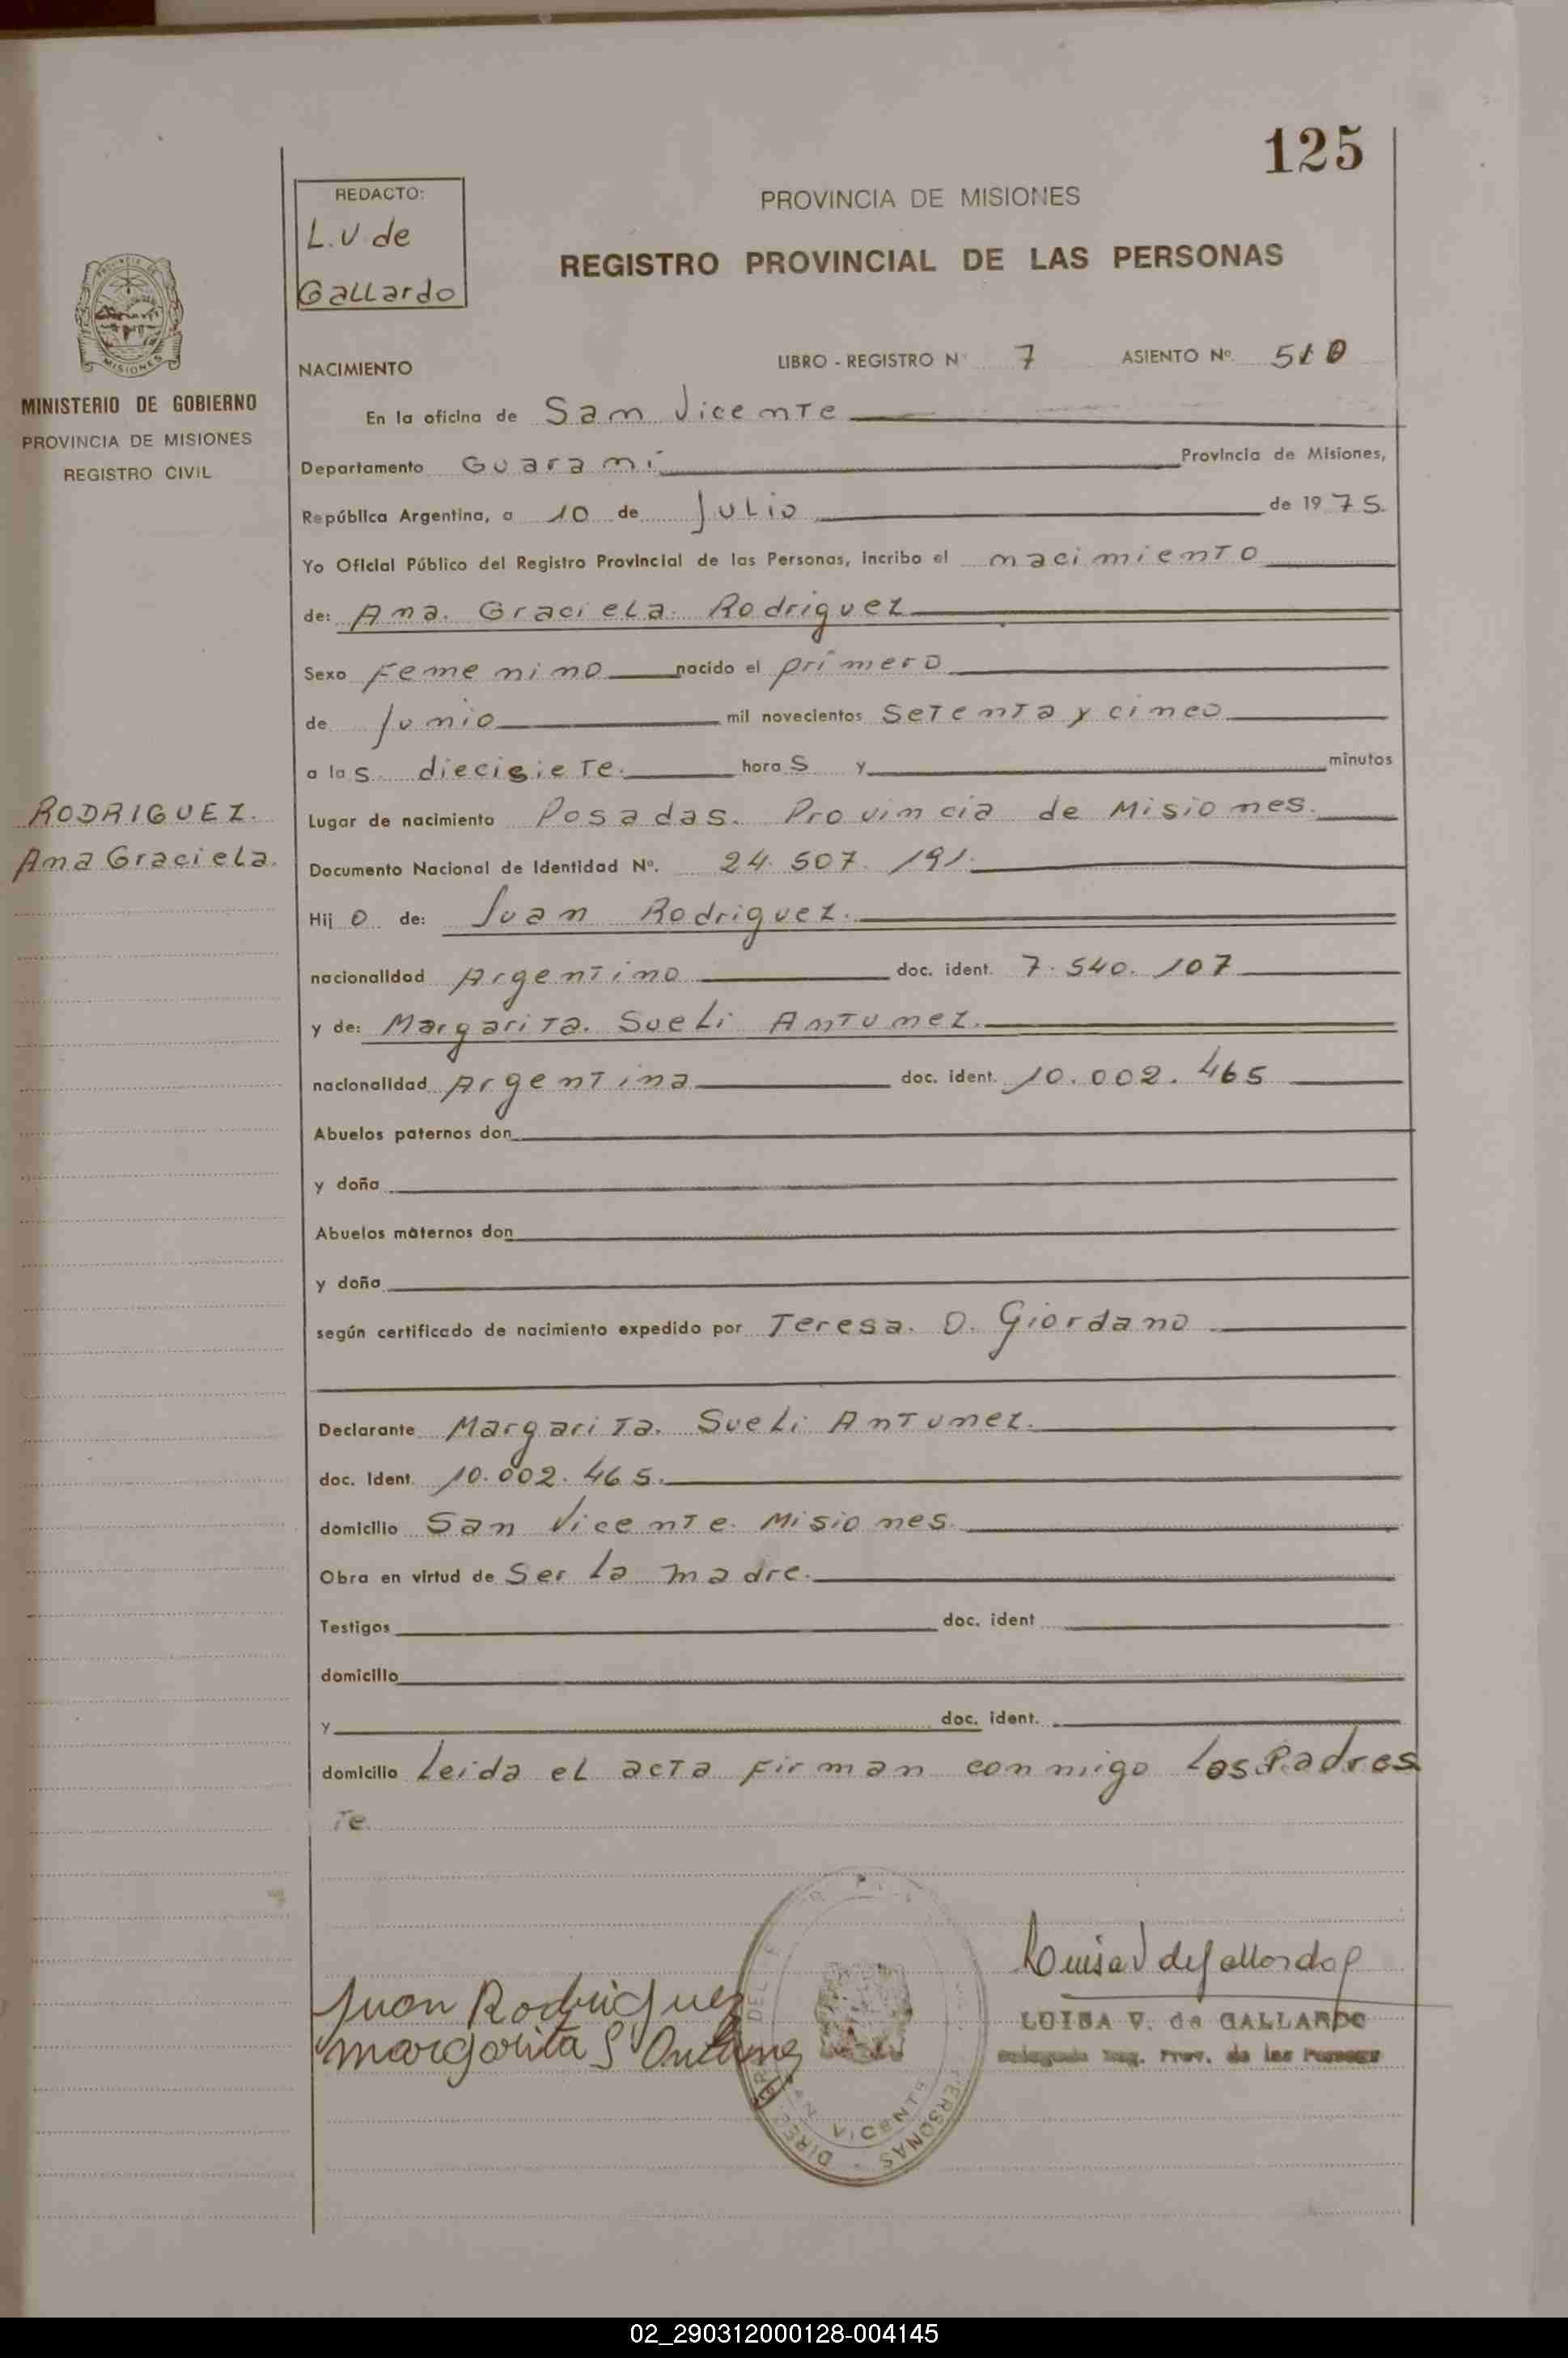 125
REDACTO:
L.V de
Gallardo
PROVINCIA DE MISIONES
REGISTRO PROVINCIAL DE LAS PERSONAS
PROVINCIA DE
MISIONES
MINISTERIO DE GOBIERNO
PROVINCIA DE MISIONES
REGISTRO CIVIL
NACIMIENTO LIBRO - REGISTRO Nº 7 ASIENTO Nº. 510
En la oficina de San Vicente
Departamento Guaraní Provincia de Misiones,
República Argentina, a 10 de Julio de 1975.
Yo Oficial Público del Registro Provincial de las Personas, incribo el nacimiento
de: Ana. Graciela. Rodriguez
Sexo Femenino nacido el primero
de Junio mil novecientos Setenta y cinco
a las diecisiete. horas y minutos
RODRIGUEZ.
Ana Graciela.
Lugar de nacimiento Posadas. Provincia de Misiones.
Documento Nacional de Identidad Nº. 24.507.191.
Hijo de: Juan Rodriguez.
nacionalidad Argentino doc. ident. 7.540.107
y de: Margarita. Sueli Antunez.
nacionalidad Argentina doc. ident. 10.002.465
Abuelos paternos don
y doña
Abuelos maternos don
y doña
según certificado de nacimiento expedido por Teresa. O. Giordano
Declarante Margarita. Sueli Antunez.
doc. Ident. 10.002.465.
domicilio San Vicente. Misiones.
Obra en virtud de Ser la madre.
Testigos doc. ident
domicilio
y doc. ident.
domicilio Leida el acta firman conmigo los Padres
Te.
Juan Rodriguez
Margarita S Antunez
Luisa V de Gallardo
LUISA V. de GALLARDO
Delegada Reg. Prov. de las Personas
SAN VICENTE
PERSONAS
02_290312000128-004145